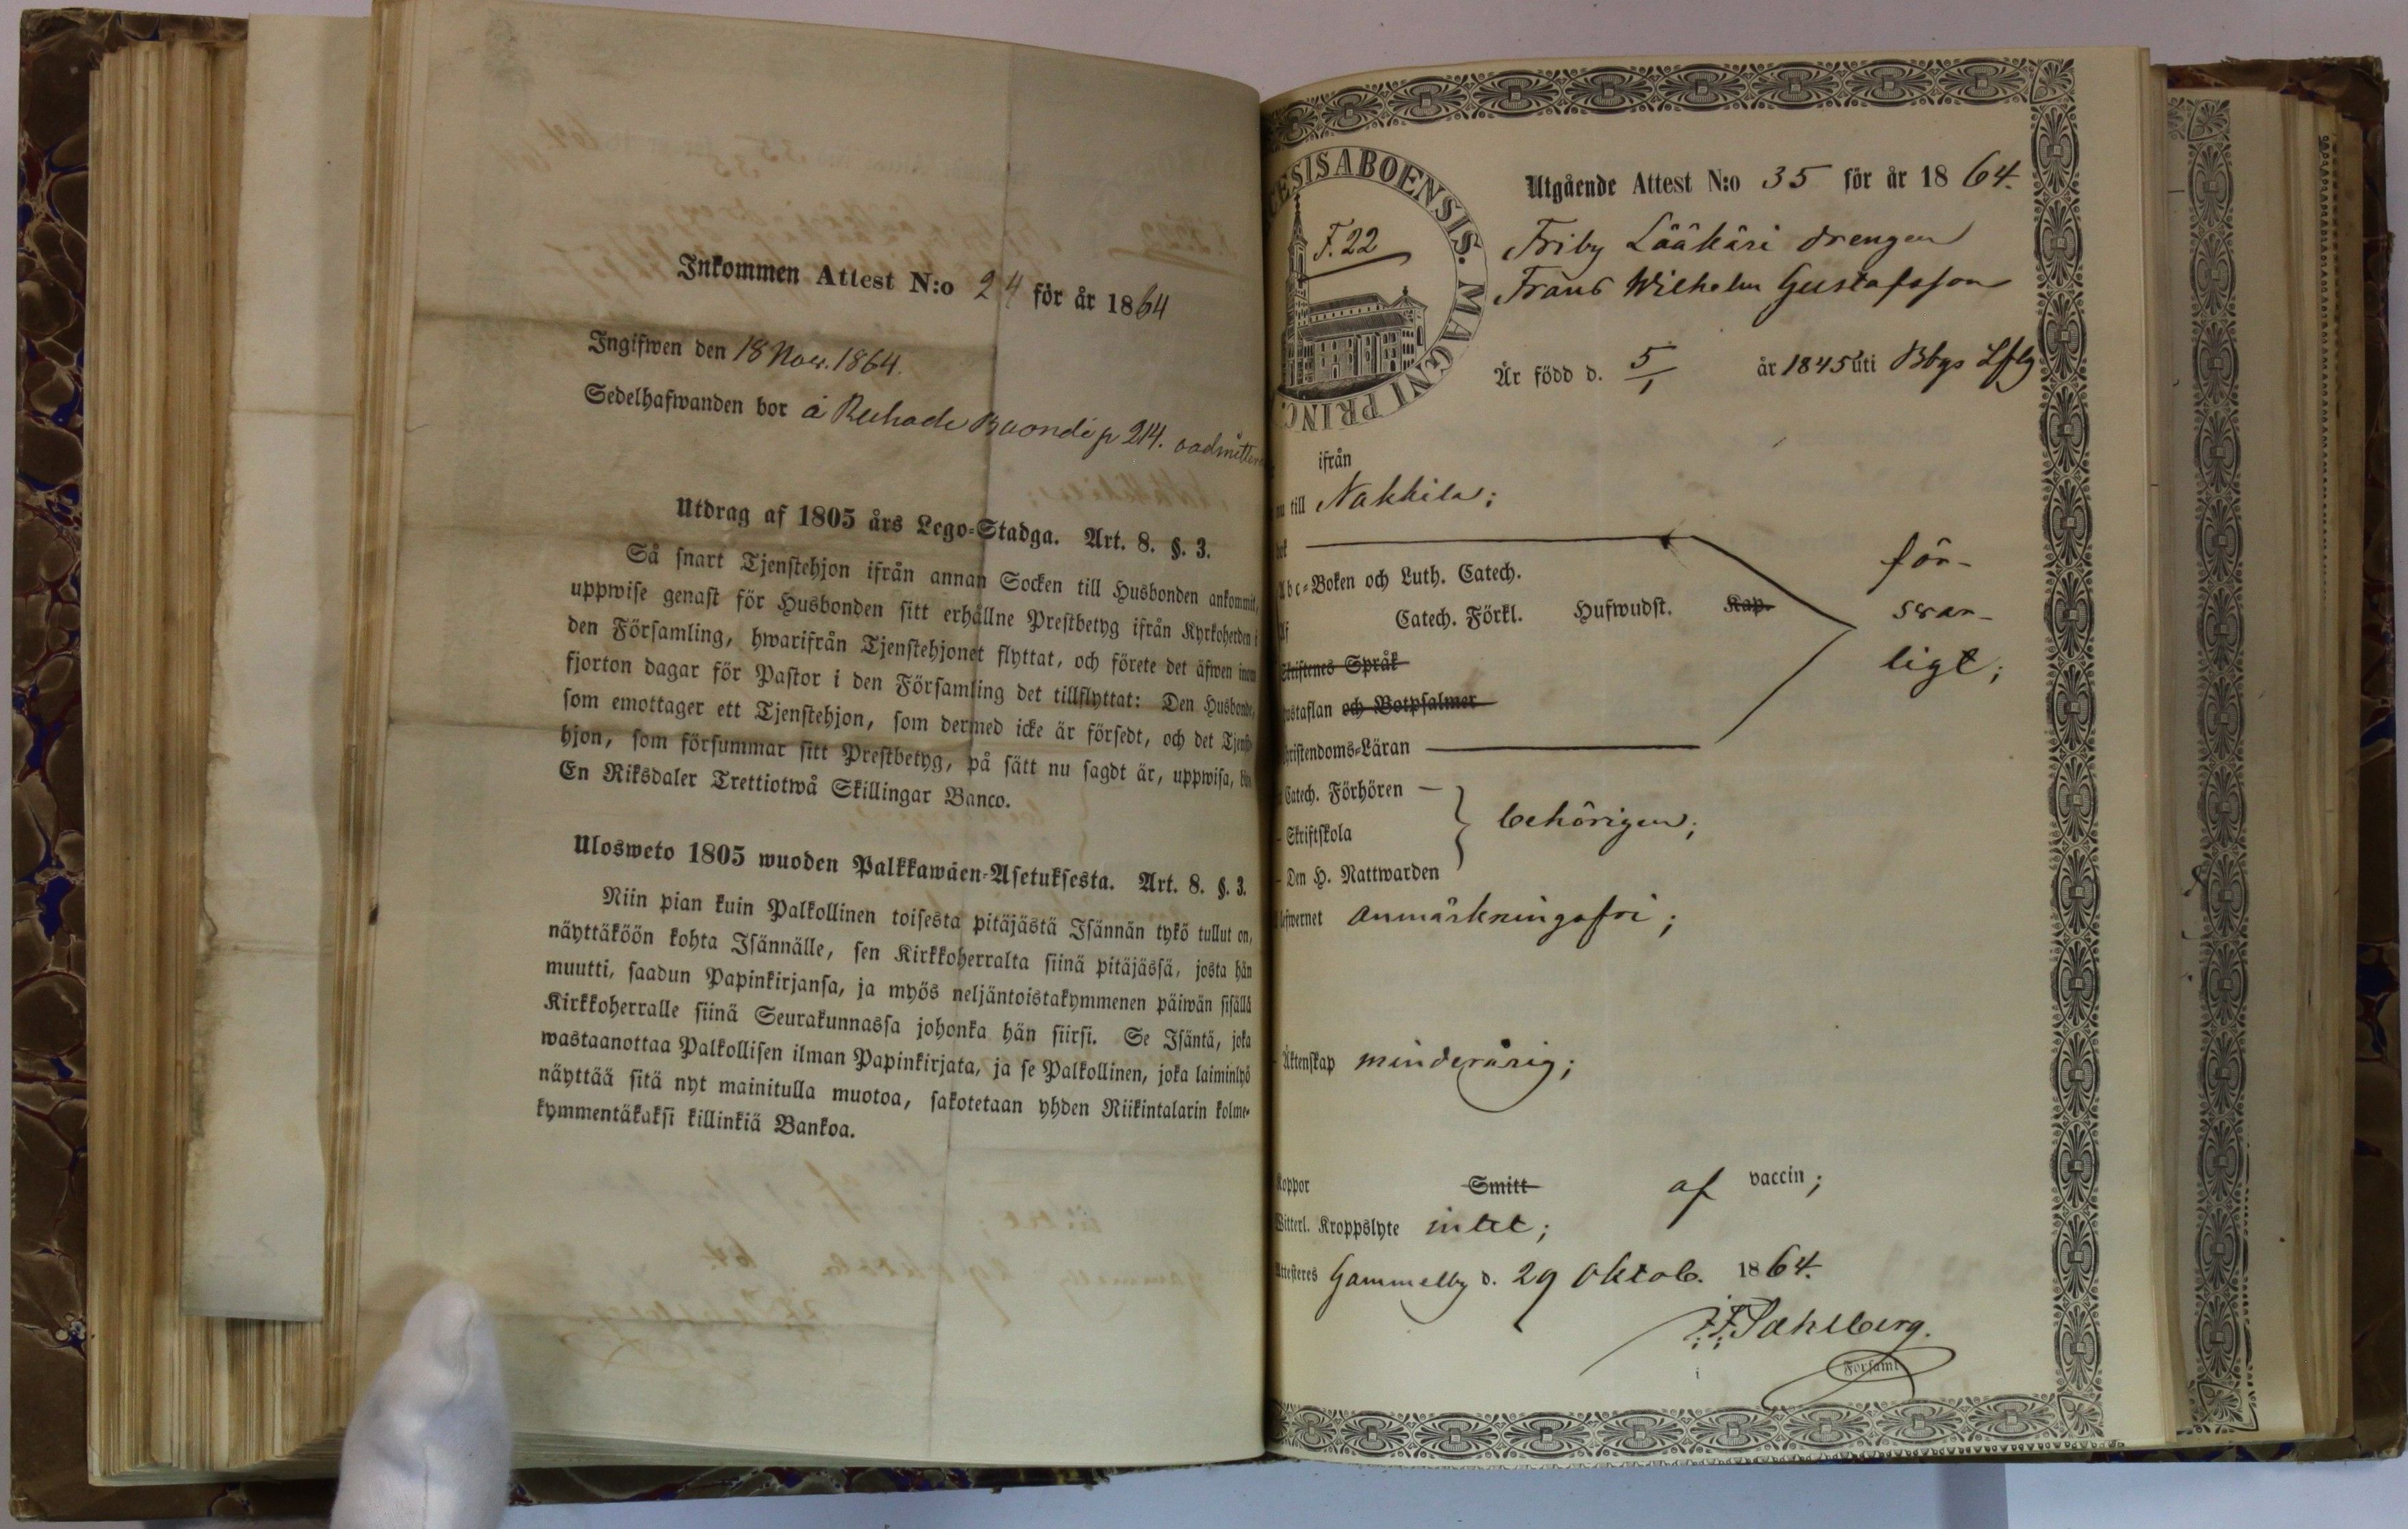 Inkommen Attest N:o 24 för år 1864
Ingifwen den 18 Nov. 1864.
Sedelhafwanden bor å p 214.
Utdrag af 1805 års Lego-Stadga. Art. 8. §. 3.
Så snart Tjenstehjon ifrån annan Socken till Husbonden ankommit,
uppwise genast för Husbonden sitt erhållne Prestbetyg ifrån Kyrkoherden i
den Församling, hwarifrån Tjenstehjonet flyttat, och förete det äfwen inom
fjorton dagar för Pastor i den Församling det tillflyttat: Den Husbonde,
som emottager ett Tjenstehjon, som dermed icke är försedt, och det Tjenste-
hjon, som försummar sitt Prestbetyg, på sätt nu sagdt är, uppwisa,
En Riksdaler Trettiotwå Skillingar Banco.
Ulosweto 1805 wuoden Palkkawäen-Asetuksesta. Art. 8. §. 3.
Niin pian kuin Palkollinen toisesta pitäjästä Isännän tykö tullut on,
näyttäköön kohta Isännälle, sen Kirkkoherralta siinä pitäjässä, josta hän
muutti, saadun Papinkirjansa, ja myös neljäntoistakymmenen päiwän sisällä
Kirkkoherralle siinä Seurakunnassa johonka hän siirsi. Se Isäntä, joka
wastaanottaa Palkollisen ilman Papinkirjata, ja se Palkollinen, joka laiminlyö
näyttää sitä nyt mainitulla muotoa, sakotetaan yhden Riikintalarin kolme-
kymmentäkaksi killinkiä Bankoa.
CESIS ABOENSIS. MAGNI PRINC
F. 22
Utgående Attest N:o 35 för år 1864.
Friby Lääkäri drengen
Frans Wilhelm Gustafsson
Är född d. 5/1 år 1845 uti Bbgs Lfsg
ifrån
nu till Nakkila;
bok
Abc-Boken och Luth. Catech.
för-
Af Catech. Förkl. Hufwudst. Kap.
svar-
Skriftenes Språk
ligt;
Hustaflan och Botpsalmer
Christendoms-Läran
Catech. Förhören
- Skriftskola
behörigen;
- Den H. Nattwarden
Lefwernet anmärkningsfri;
- Äktenskap minderårig;
Koppor Smitt af vaccin;
Witterl. Kroppslyte intet;
Attesteres Gammelby d. 29 Oktob. 1864.
F. F. Sahlberg.
i Församl